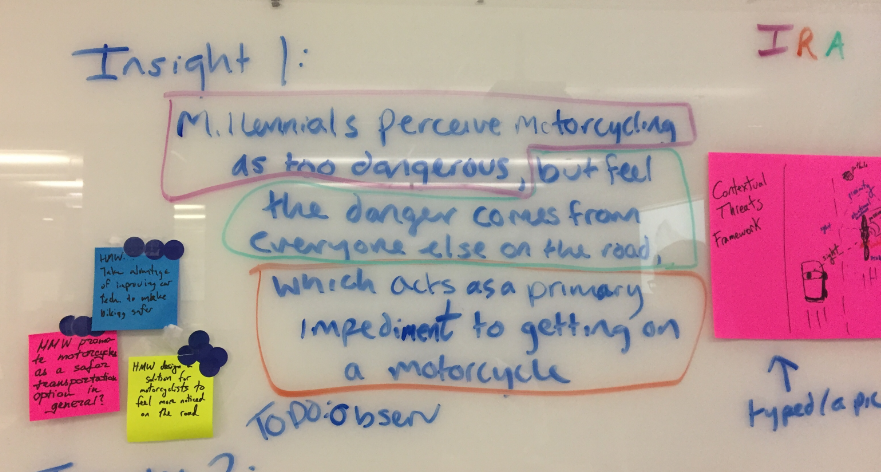 Insight 1:
IRA
Millennials perceive motorcycling
as too dangerous, but feel
the danger comes from
everyone else on the road,
which acts as a primary
impediment to getting on
a motorcycle
TODO: observ
HMW:
Take advantage
of improving car
tech to make
biking safer
HMW promo-
te motorcycles
as a safer
transportation
option in
general?
HMW design a
solution for
motorcyclists to
feel more noticed
on the road
Contextual
Threats
Framework
right
typed/a pic